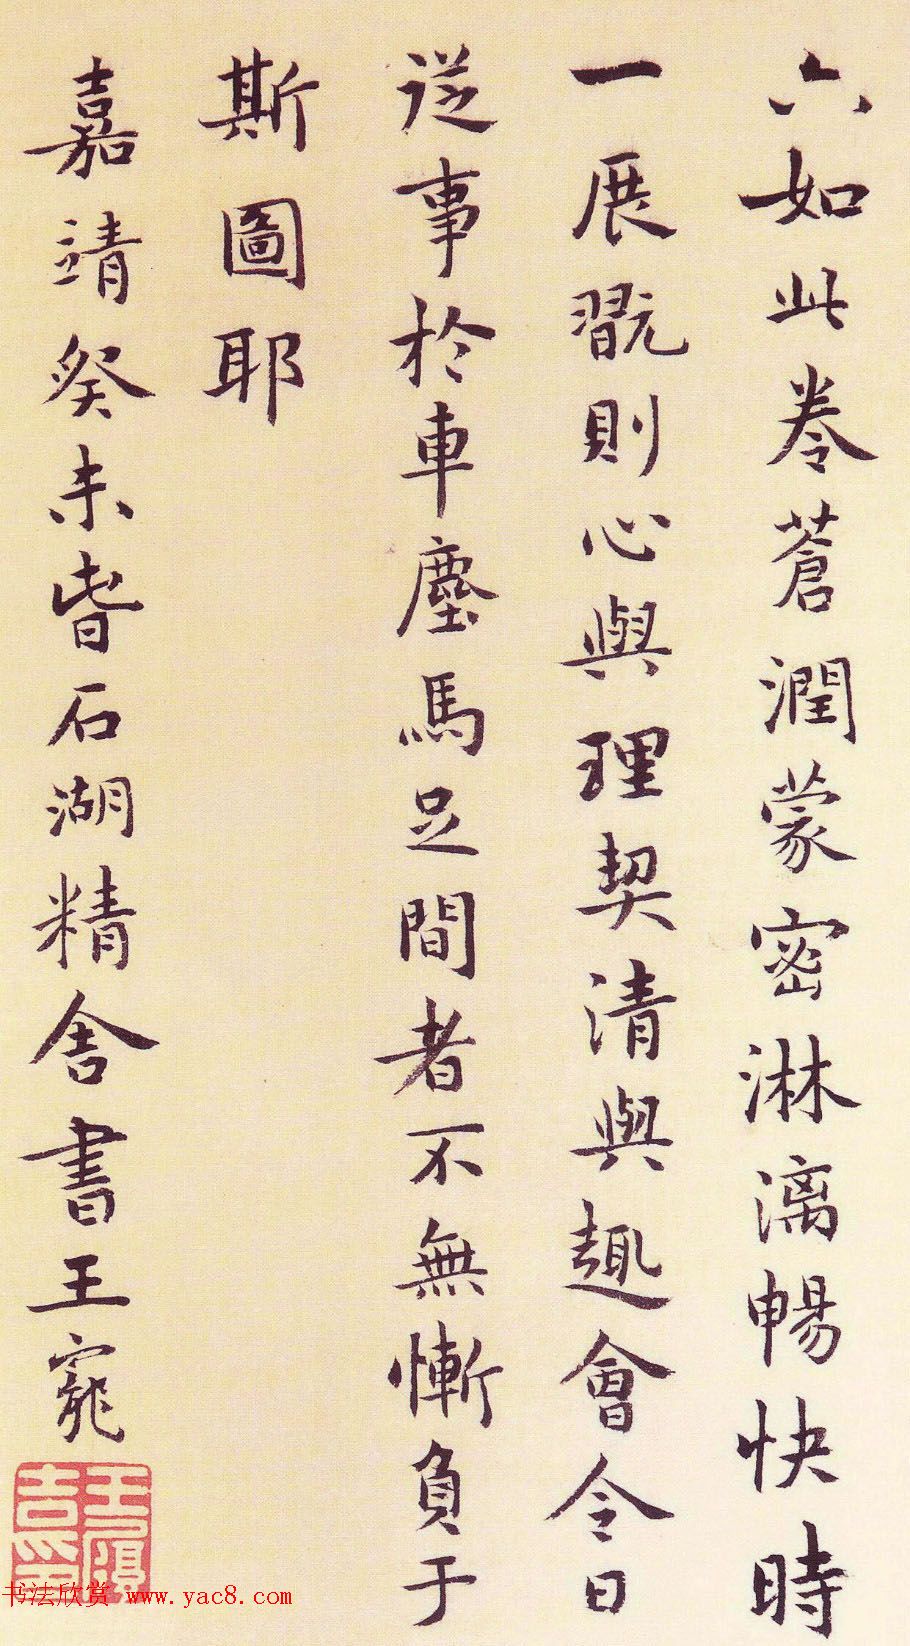 六如此卷蒼潤蒙密淋漓暢快時
一展翫則心與理契清與趣會今日
從事於車塵馬足間者不無慚負于
斯圖耶
嘉靖癸未旹石湖精舍書王寵
王履吉印
书法欣赏 www.yac8.com